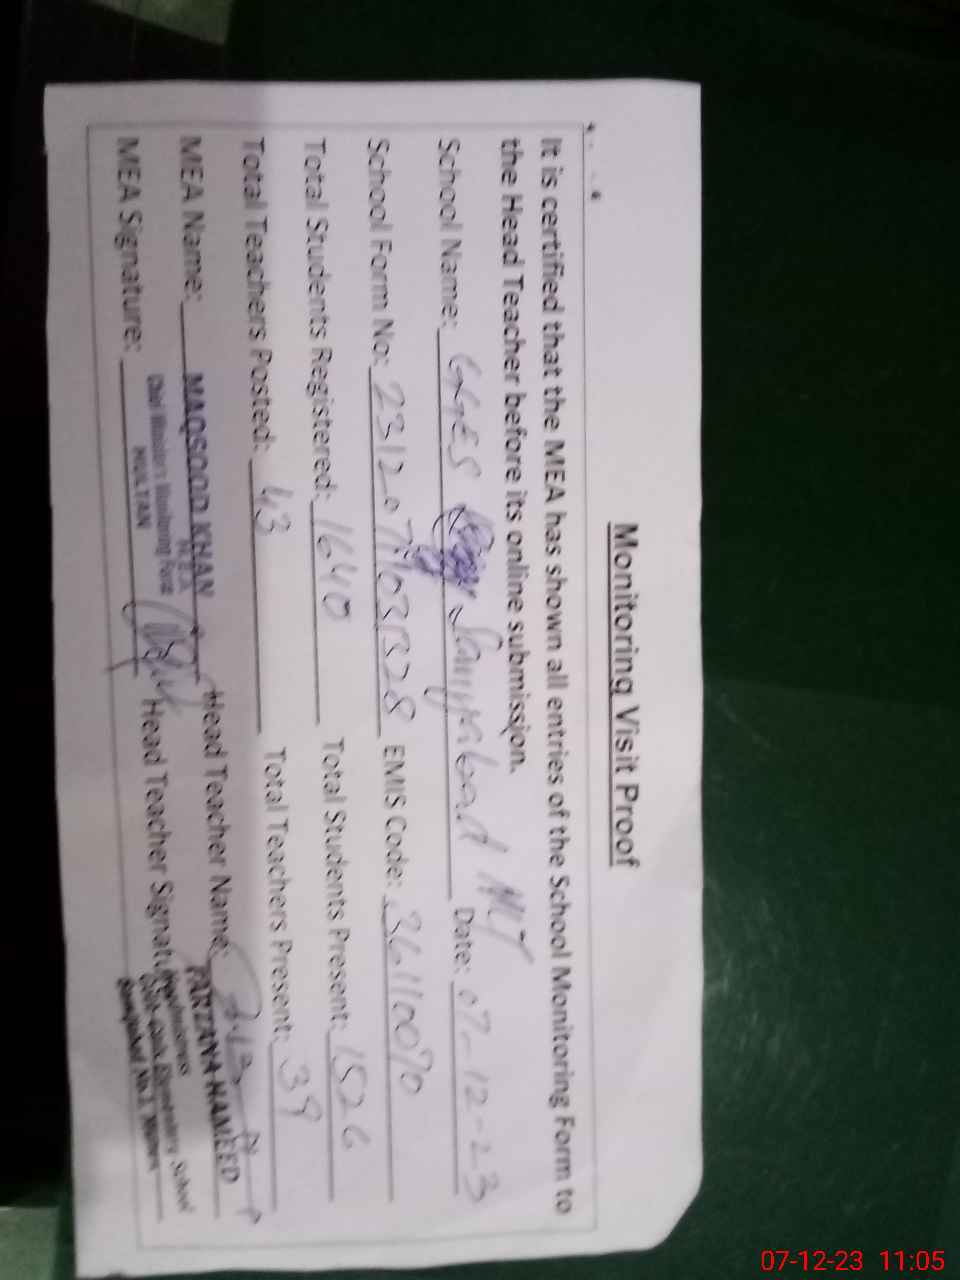 Monitoring Visit Proof
It is certified that the MEA has shown all entries of the School Monitoring Form to
the Head Teacher before its online submission.
School Name: GGES Date: 07-12-23
School Form No: EMIS Code: 36110070
Total Students Registered: 1640 Total Students Present: 1526
Total Teachers Posted: 43 Total Teachers Present: 39
MEA Name: MAQSOOD KHAN Head Teacher Name: FARZANA HAMEED
M.E.A
MEA Signature: Head Teacher Signature
Chief Minister's Monitoring Force
MULTAN
Headmistress
Govt. Girls Elementary School
07-12-23 11:05